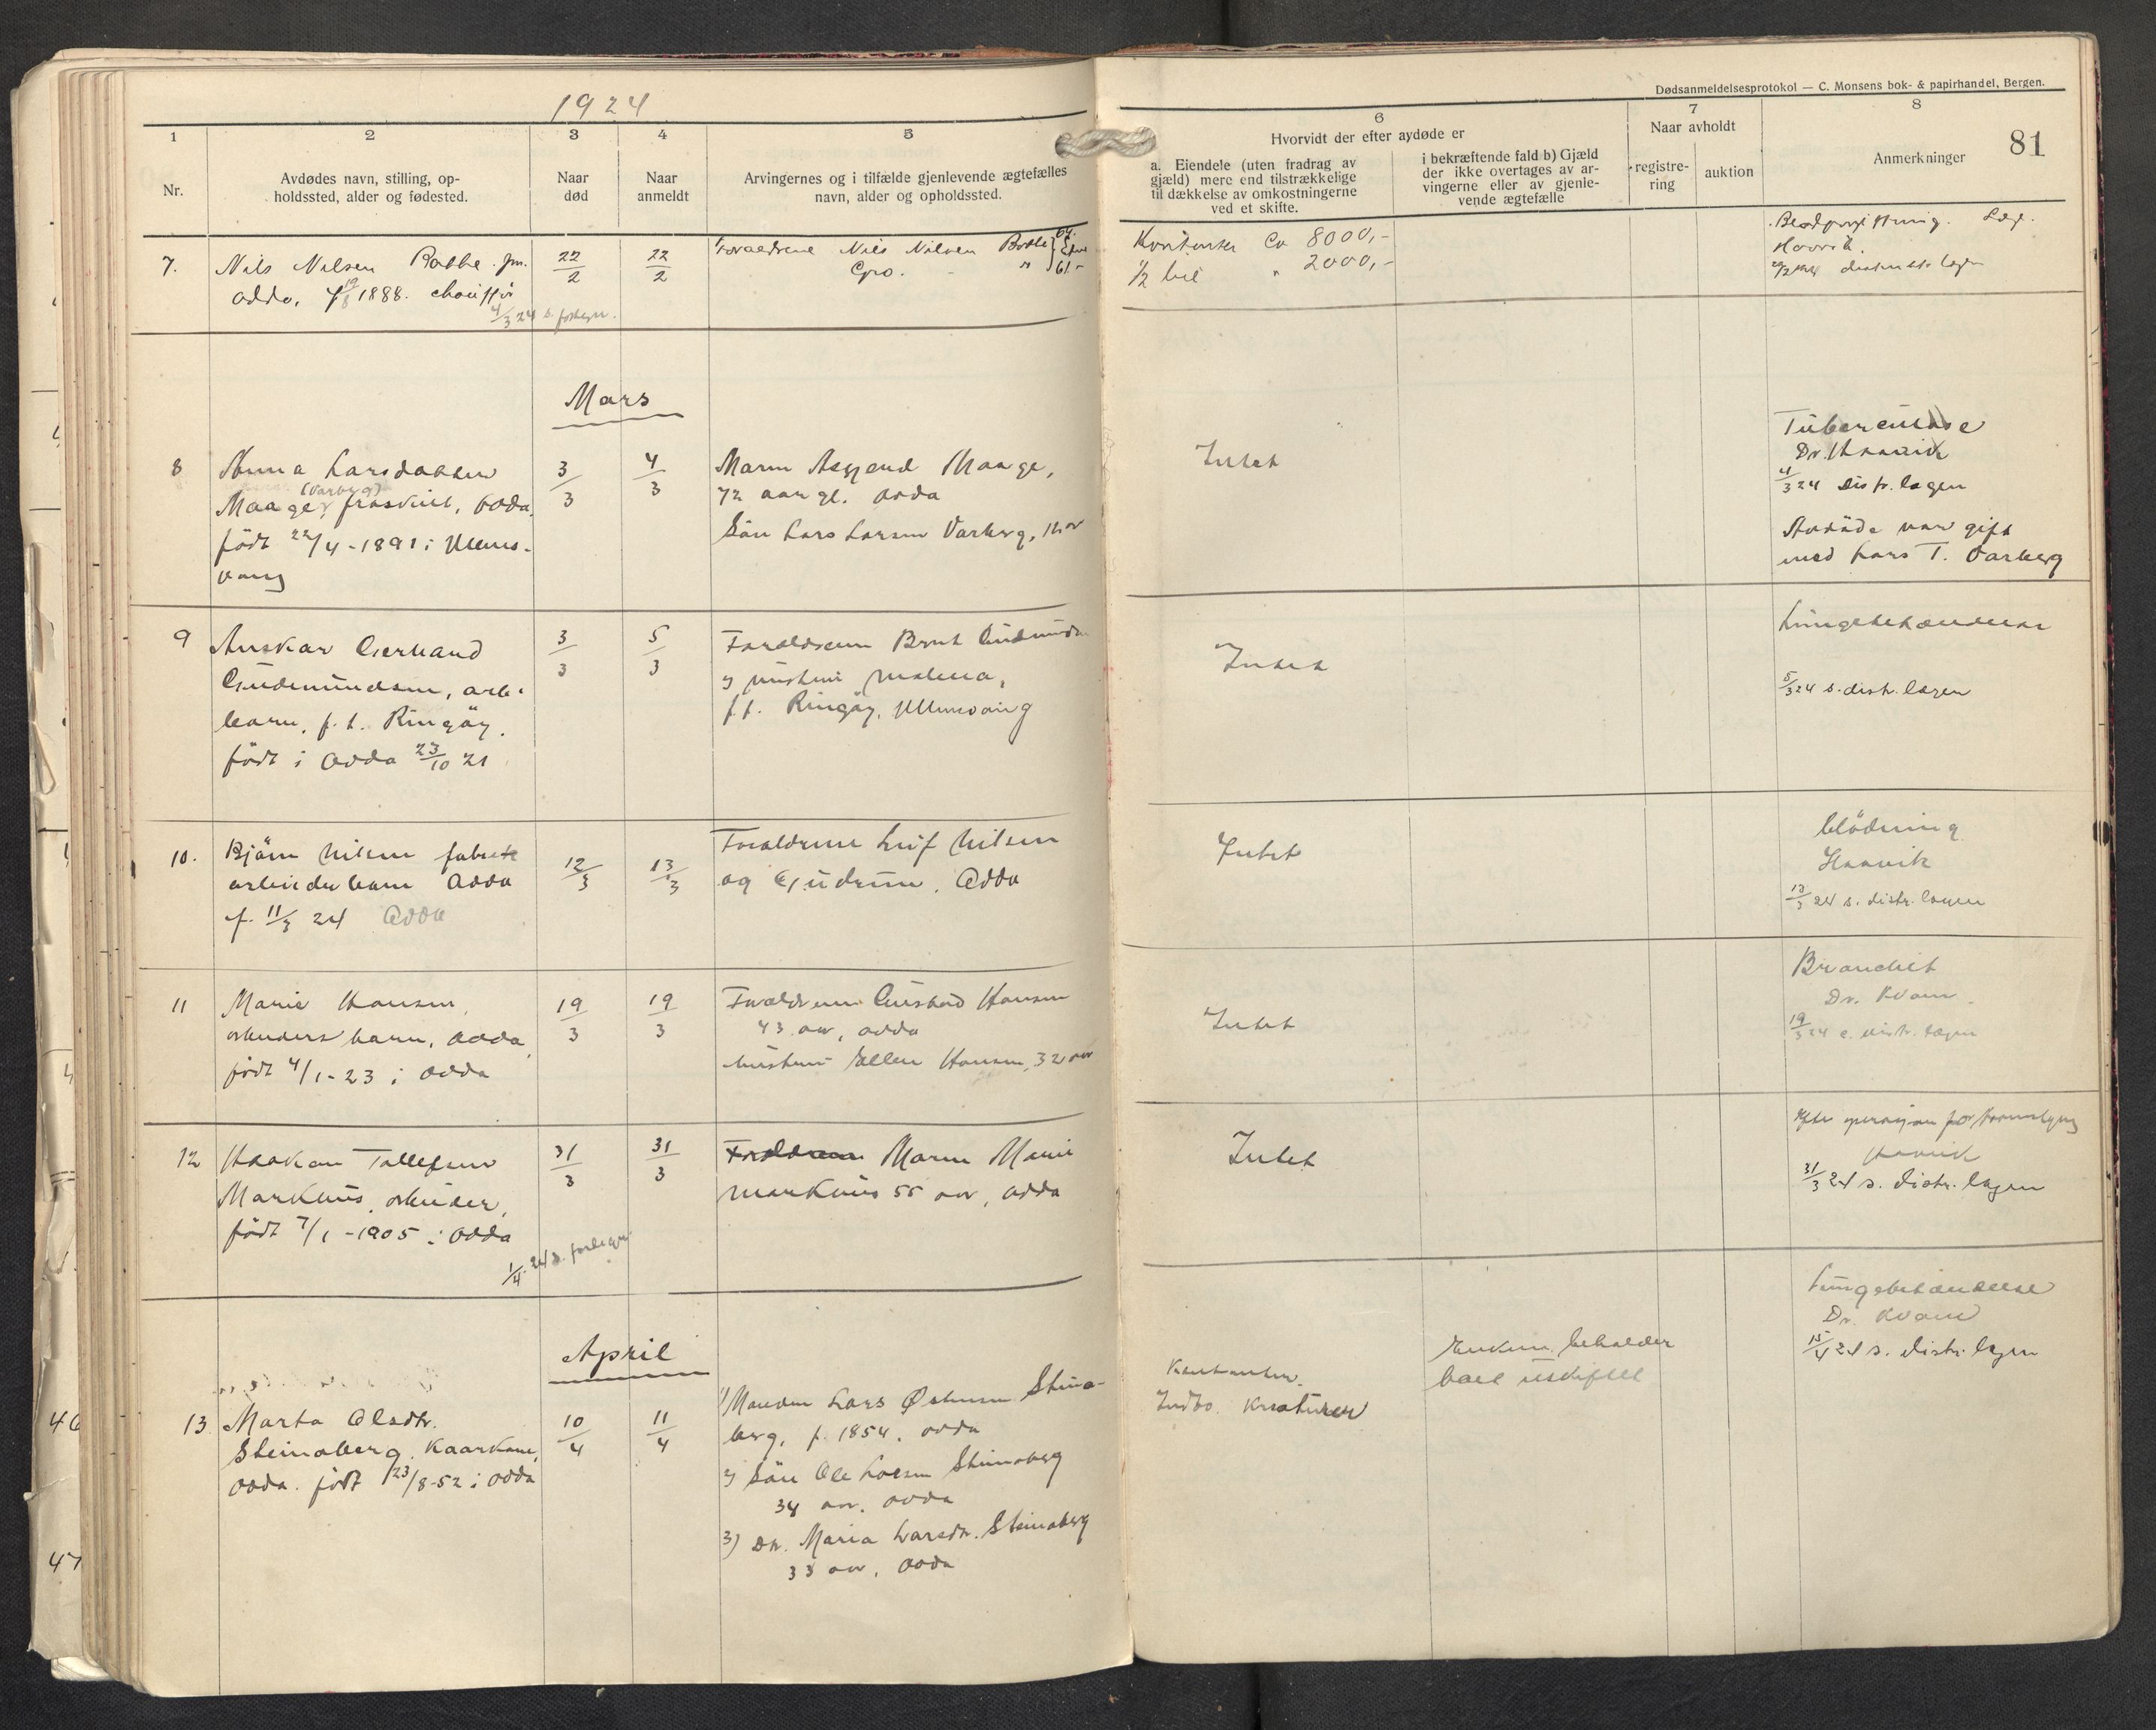 1924
1
2
3
4
5
Nr.
Avdødes navn, stilling, op-
holdssted, alder og fødested.
Naar
død
Naar
anmeldt
Arvingernes og i tilfælde gjenlevende ægtefælles
navn, alder og opholdssted.
Dødsanmeldelsesprotokol — C. Monsens bok- & papirhandel, Bergen.
6
7
8
81
Hvorvidt der efter avdøde er
a. Eiendele (uten fradrag av
gjæld) mere end tilstrækkelige
til dækkelse av omkostningerne
ved et skifte.
i bekræftende fald b) Gjæld
der ikke overtages av ar-
vingerne eller av gjenle-
vende ægtefælle
Naar avholdt
registre-
ring
auktion
Anmerkninger
7.
Nils Nilsen jun.
Odda, f 1888. chauffør
4/3 24 s.
22/2
22/2
Forældrene Nils Nilsen
Gro. 61
Kontanter Ca 8000,-
1/2 bil " 2000,-
Mars
8
Anna Larsdatter
(Varberg)
Maage, fraskilt, Odda,
født 22/4 - 1891 i Ullens-
vang
3/3
4/3
Mann Asgjend Maage,
72 aar gl. Odda
Søn Lars Larsen Varberg,
Intet
Tuberculose
Dr. Haavik
4/3 24 distr. lægen
Avdøde var gift
med Lars T. Varberg
9
Anskar Gerhard
Gudmundsen, arb.
barn, f. t. Ringøy.
født i Odda 23/10 21
3/3
5/3
Forældrene Bernt Gudmundsen
og hustru Malena,
f. t. Ringøy, Ullensvang
Intet
Lungebetændelse
5/3 24 s. distr. lægen
10.
Bjørn Nilsen fabrik
arbeiderbarn Odda
f. 11/3 24 Odda
12/3
13/3
Forældrene Leif Nilsen
og Gudrun, Odda
Intet
blødning
Haavik
13/3 24 s. distr. lægen
11
Marie Hansen,
arbeiders barn, Odda,
født 4/1 - 23 i Odda
19/3
19/3
Forældrene Hansen
43 aar, Odda
hustru Ellen Hansen, 32 aar
Intet
Bronchit
Dr. Kvam
19/3 24 s. distr. lægen
12
Haakon Tollefsen
Markhus, arbeider,
født 7/1 - 1905 i Odda
1/4 24 s.
31/3
31/3
Forældrene Marie
Markhus 55 aar, Odda
Intet
Efter operasjon for
Haavik
31/3 24 s. distr. lægen
April
13
Marta Olsdtr.
Steinaberg, Kaarkone,
Odda. født 23/8-52 i Odda
10/4
11/4
1) Manden Lars Østensen Steina-
berg, f. 1854, Odda
2) Søn Ole Larsen Steinaberg
34 aar. Odda
3) Dtr. Maria Larsdtr. Steinaberg
33 aar, Odda
Indbo. Kreaturer
beholder
boet uskiftet
Lungebetændelse
Dr. Kvam
15/4 24 s. distr. lægen
46
47